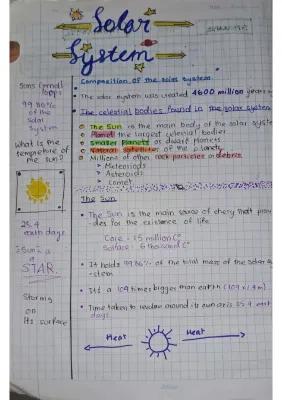 Solar
System
Composition of the solar system
The solar system was created 4600 million years
The celestial bodies found in the solar system
The Sun is the main body of the solar syste
Planet the largest celestial bodies
Smaller Planets or dwarf planets
Natural satellites of the planets
Millions of other rock particles or debris
> Meteoroids
> Asteroids
> Comet
Sun's
99.86%
of the
Solar
System
What is the
temperature of
the sun?
25.4
earth days
Sun is a
STAR.
Storms
on
its surface
The Sun
The Sun is the main source of energy that provi
des for the existence of life.
Core = 15 million C°
Surface = 6 thousand C°
It holds 99.86% of the total mass of the solar s
-stem
It's a 109 times bigger than earth (109 x 1.4 m
Time taken to revolve around its own axis 25.4 eart
days.
Heat
Heat